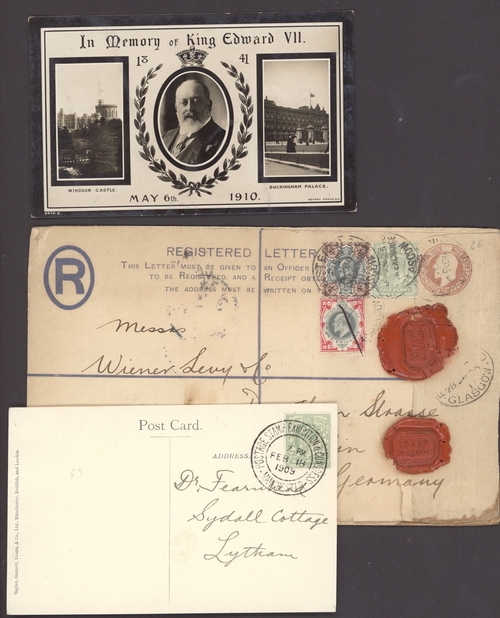 In Memory of King Edward VII.
18 41
WINDSOR CASTLE.
BUCKINGHAM PALACE.
MAY 6th. 1910.
REGISTERED LETTER
THIS LETTER MUST BE GIVEN TO AN OFFICER
TO BE REGISTERED, AND A RECEIPT OBTAINED
THE ADDRESS MUST BE WRITTEN ON
R
Messrs
Wiener Levy & Co
Strasse
Germany
GLASGOW
Post Card.
ADDRESS
POSTAGE STAMP EXHIBITION & CONGRESS
MANCHESTER
PM
FEB 18
1909
Dr. Fearn
Sydall Cottage
Lytham
Taylor, Garnett, Evans, & Co., Ltd., Manchester, Reddish, and London.